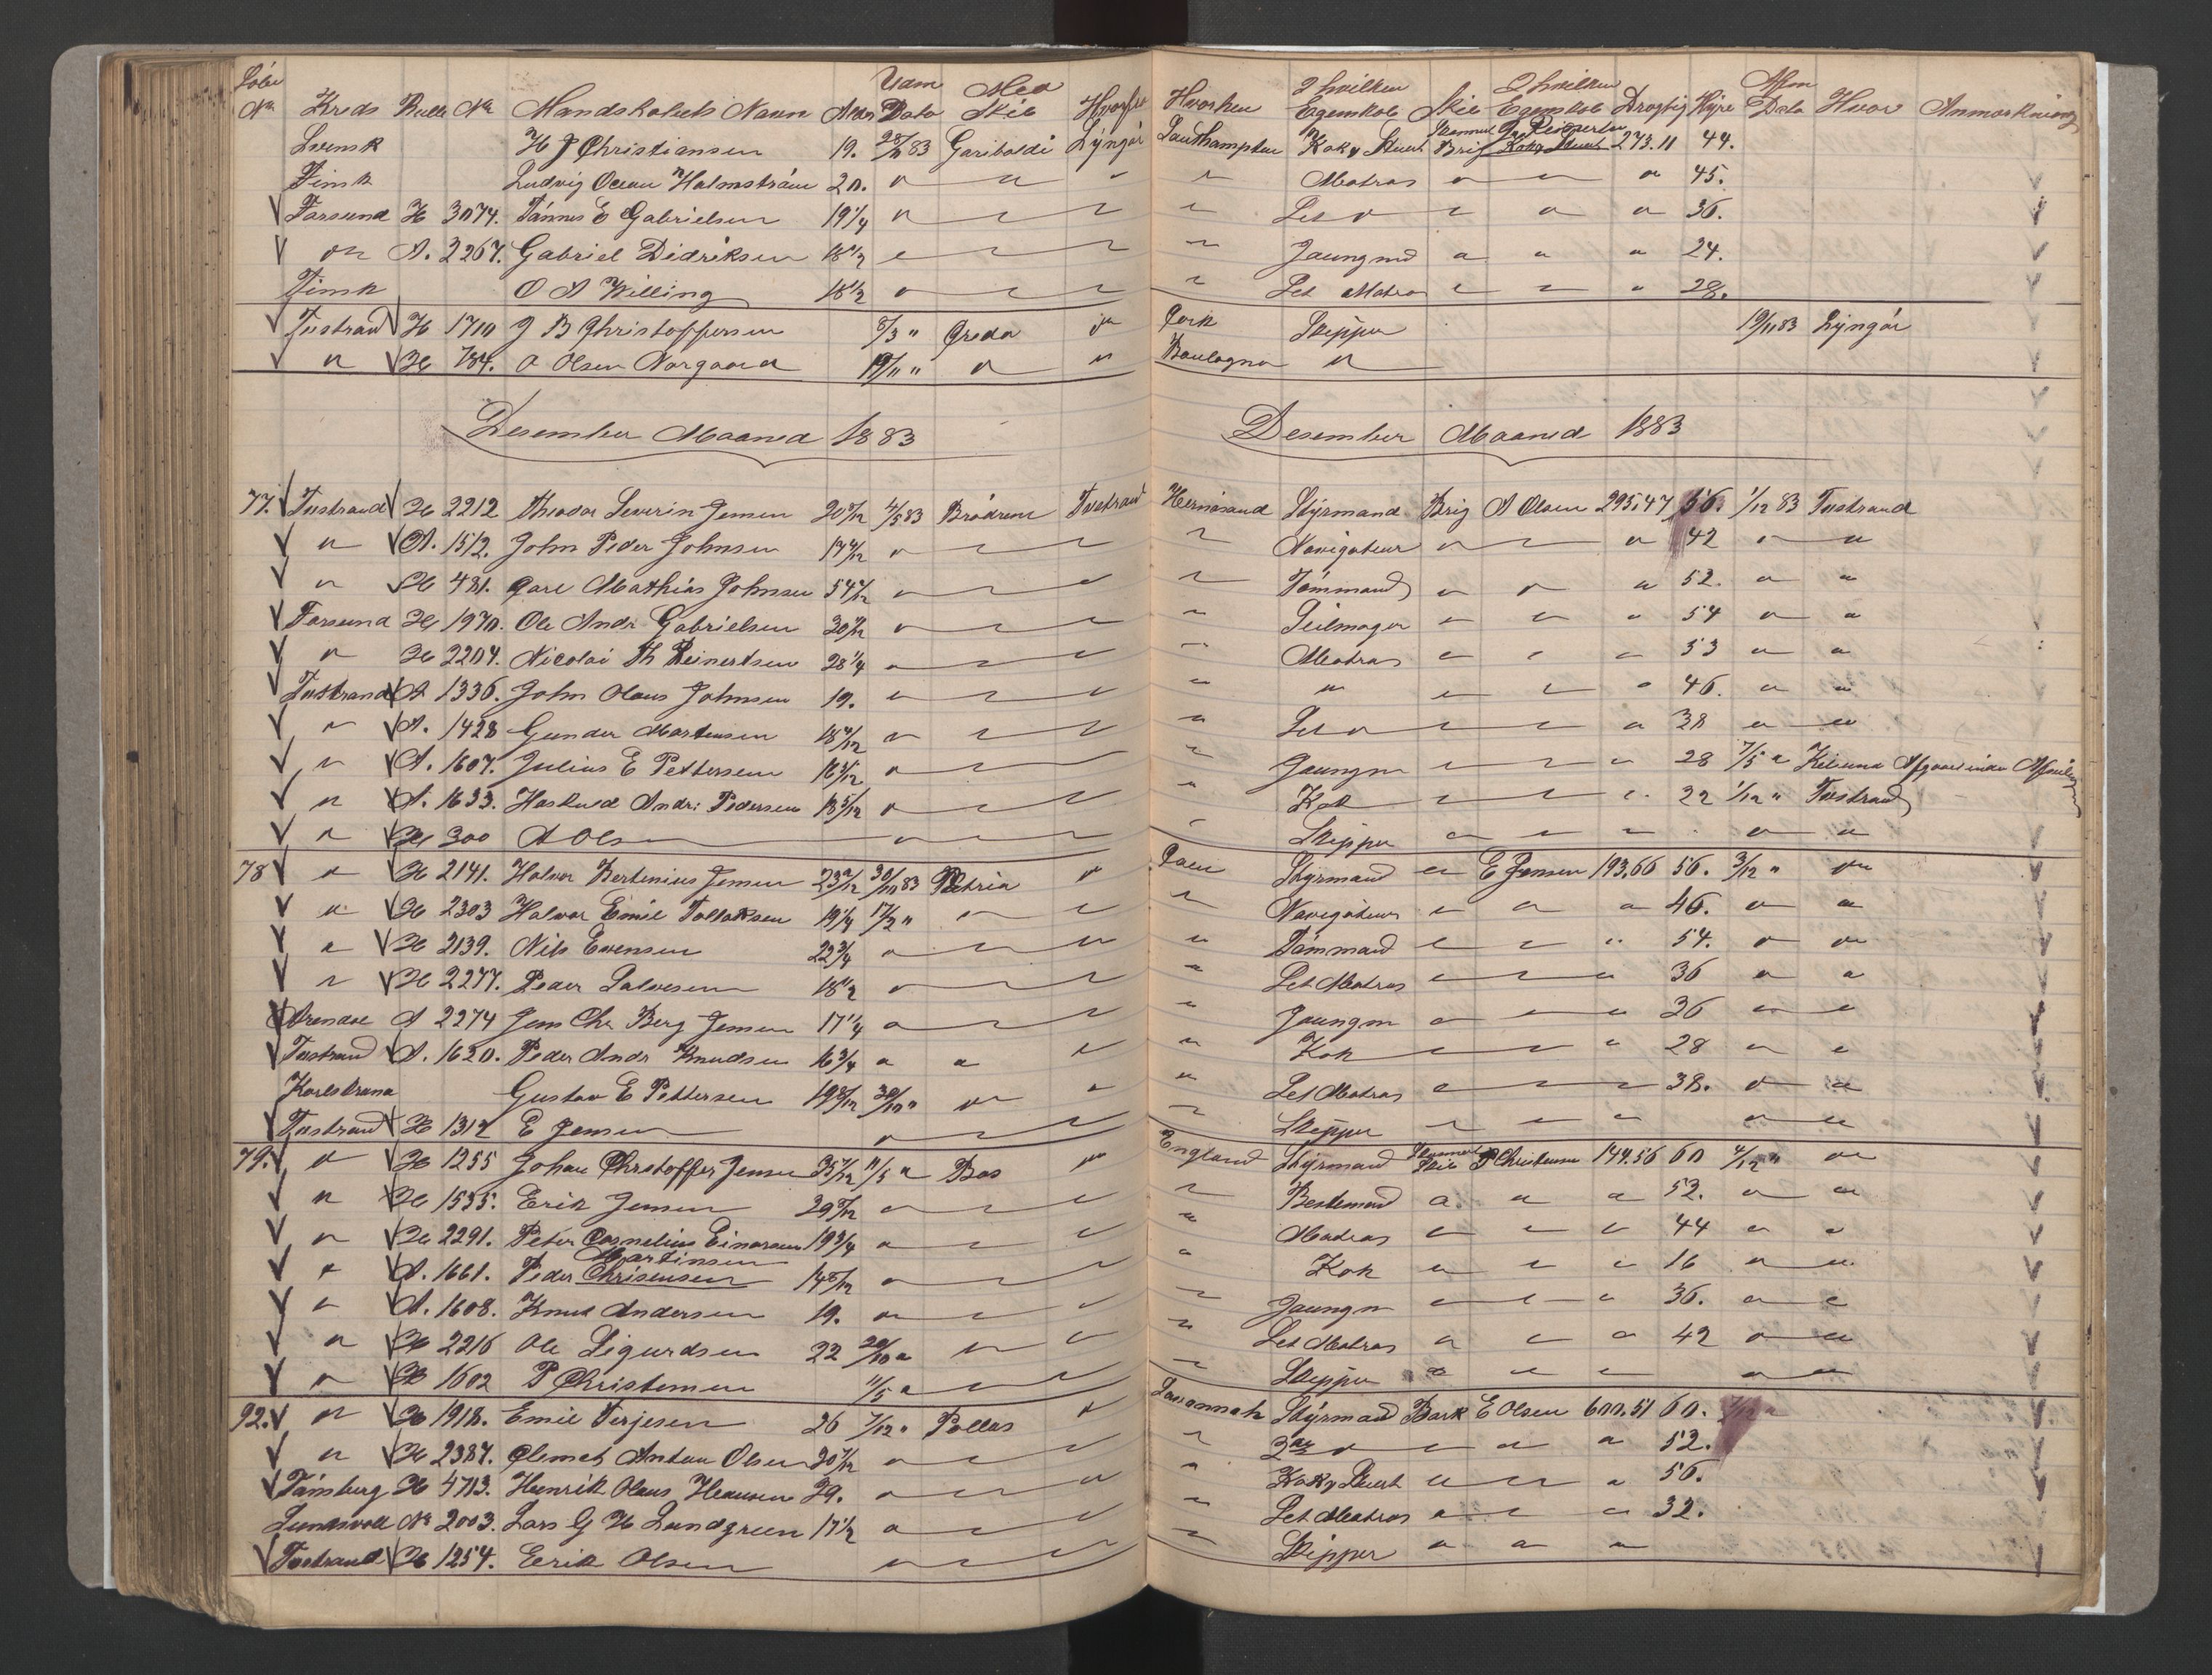 Løbe Udm Med I hvilken I hvilken Afm
No Kreds Rulle No Mandskabets Navn Alder Dato Skib Hvorfra Hvorhen Egenskab Skib Egenskab Drægtig Hyre Dato Hvor Anmærkning
Svensk H J Christiansen 19. 28/11 83 Garibaldi Lyngør Southampton Kok & Stuert Brig 273.11 44.
Finsk Ludvig Ocean Holmstrøm 20. " " " " Matros " " " 45.
Farsund H 3074. Tønnes E Gabrielsen 19 1/4 " " " " Let " " " " 36.
" A. 2267. Gabriel Didriksen 18 1/2 " " " " Jaungmd " " " 24.
Finsk O A Willing 18 1/2 " " " " Let Matros " " " 28.
Tvestrand H 1710 J B Christoffersen 8/3 " Creda " Cork Skipper 19/11 83 Lyngør
" H 784. O Olsen Norgaard 19/11 " " " Boulogne "
Desember Maaned 1883 Desember Maaned 1883
77. Tvestrand H 2212 Theodor Severin Jensen 20 /12 4/5 83 Brødrene Tvestrand Hernøsand Styrmand Brig A Olsen 295,47 56. 1/12 83 Tvestrand
" A. 1512. John Peder Johnsen 17 /12 " " " " Navigateur " " " 42 " "
" H 481. Carl Mathias Johnsen 54 /12 " " " " Tømmand " " " 52. " "
Farsund H 1970. Ole Andr Gabrielsen 20 /12 " " " " Seilmager " " " 54 " "
" H 2204. Nicolai Th Reinertsen 28 1/4 " " " " Matros " " " 53 " "
Tvestrand A 1336. John Olaus Johnsen 19. " " " " " " " " 46. " "
" A. 1428 Gunder Martensen 18 /12 " " " " Let " " " " 38 " "
" A. 1607. Julius E Pettersen 16 /12 " " " " Jaungm " " " 28 7/5 " Afgaaet inden Afmeling
" A. 1633. Haskuld Andr: Pedersen 18 5/12 " " " " Kok " " " 22 1/12 " Tvestrand
" H 300 A Olsen " " " " Skipper " " " " "
78 " H 2141. Halvor Bertinius Jensen 23 /12 30/11 83 Patria " Caen Styrmand " E Jensen 193,66 56. 3/12 " "
" H 2303 Halvor Emil Tollaksen 19 1/4 17/2 " " " " Navigateur " " " 46. " "
" H 2139. Nils Evensen 22 3/4 " " " " Tømmand " " " 54. " "
" H 2277. Peder Salvesen 18 1/2 " " " " Let Matros " " " 36 " "
Arendal A 2274 Jens Chr Berg Jensen 17 1/4 " " " " Jaungm " " " 26 " "
Tvestrand A. 1620. Peder Andr Knudsen 16 3/4 " " " " Kok " " " 28 " "
Gustav E Pettersen 19 8/12 30/10 " " " " Let Matros " " " 38. " "
Tvestrand H 1312 E Jensen " " " " Skipper " " " " "
79. " H 1255 Johan Christoffer Jensen 35 /12 11/5 " Bas " England Styrmand P Christensen 144.56 60 4/12 " "
" H 1535. Erik Jensen 29 /12 " " " " Bestemand " " " 52. " "
" H 2291. Peter Cornelius Einarsen 19 3/4 " " " " Matros " " " 44 " "
Martinsen
" A. 1661. Peder Chrisensen 14 8/12 " " " " Kok " " " 16 " "
" A. 1608. Knud Andersen 19. " " " " Jaungm " " " 36. " "
" H 2216 Ole Sigurdsen 22 20/10 " " " " Let Matros " " " 42 " "
" H 1602 P Christensen 11/5 " " " " Skipper " " " " "
92. " H 1918. Emil Terjesen 26 7/12 " Pollux " Savannah Styrmand Bark E Olsen 600.51 60. 7/12 "
" H 2387. Clemet Anton Olsen 20 /12 " " " " 2den " " " " 52.
Tønsberg H 4713. Henrik Olaus Hansen 29. " " " " Kok & Stuert " " " 56.
Sundsvall No 2003. Lars G H Lundgreen 17 1/2 " " " " Let Matros " " " 32.
Tvestrand H 1254. Eerik Olsen " " " " Skipper " " "